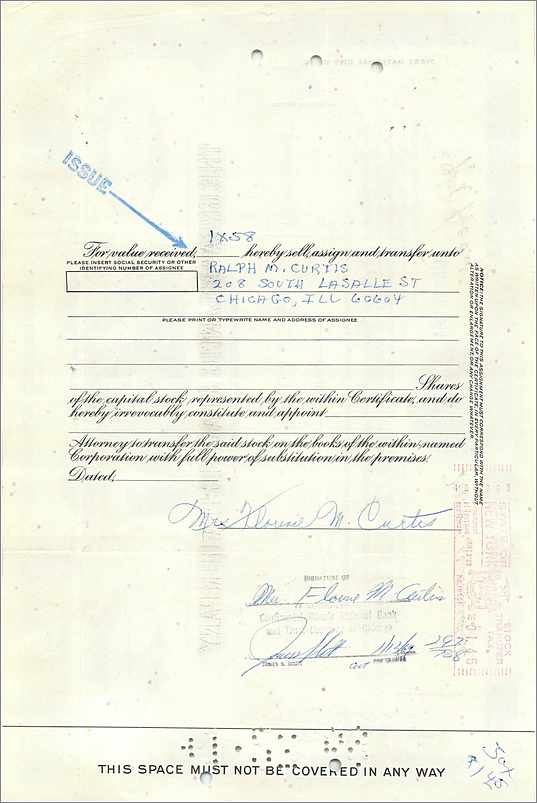 ISSUE
1X58
For value received, hereby sell, assign and transfer unto
PLEASE INSERT SOCIAL SECURITY OR OTHER
IDENTIFYING NUMBER OF ASSIGNEE
RALPH M. CURTIS
208 SOUTH LASALLE ST
CHICAGO, ILL 60604
PLEASE PRINT OR TYPEWRITE NAME AND ADDRESS OF ASSIGNEE
Shares
of the capital stock represented by the within Certificate, and do
hereby irrevocably constitute and appoint
Attorney to transfer the said stock on the books of the within named
Corporation with full power of substitution in the premises.
Dated,
NOTICE: THE SIGNATURE TO THIS ASSIGNMENT MUST CORRESPOND WITH THE NAME
AS WRITTEN UPON THE FACE OF THE CERTIFICATE IN EVERY PARTICULAR, WITHOUT
ALTERATION OR ENLARGEMENT, OR ANY CHANGE WHATEVER.
Mrs. M. Curtis
SIGNATURE OF
M Curtis
National Bank
and Trust Company of Chicago
STOCK
TRANSFER
THIS SPACE MUST NOT BE COVERED IN ANY WAY